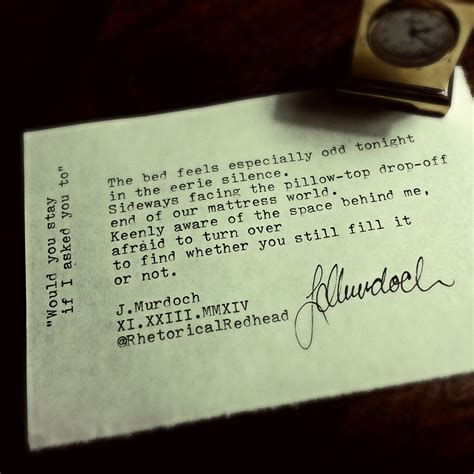 "Would you stay
if I asked you to"
The bed feels especially odd tonight
in the eerie silence.
Sideways facing the pillow-top drop-off
end of our mattress world.
Keenly aware of the space behind me,
afraid to turn over
to find whether you still fill it
or not.
J.Murdoch
XI.XXIII.MMXIV
@RhetoricalRedhead
JMurdoch